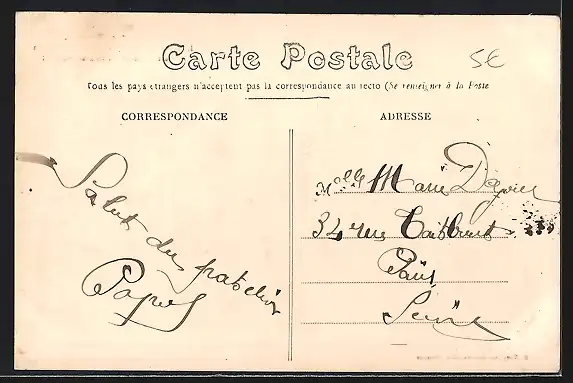 Carte Postale
5€
Tous les pays étrangers n'acceptent pas la correspondance au recto (Se renseigner à la Poste
CORRESPONDANCE
ADRESSE
Salut du
Mlle Marie
34 rue Taitbout
Paris
Seine